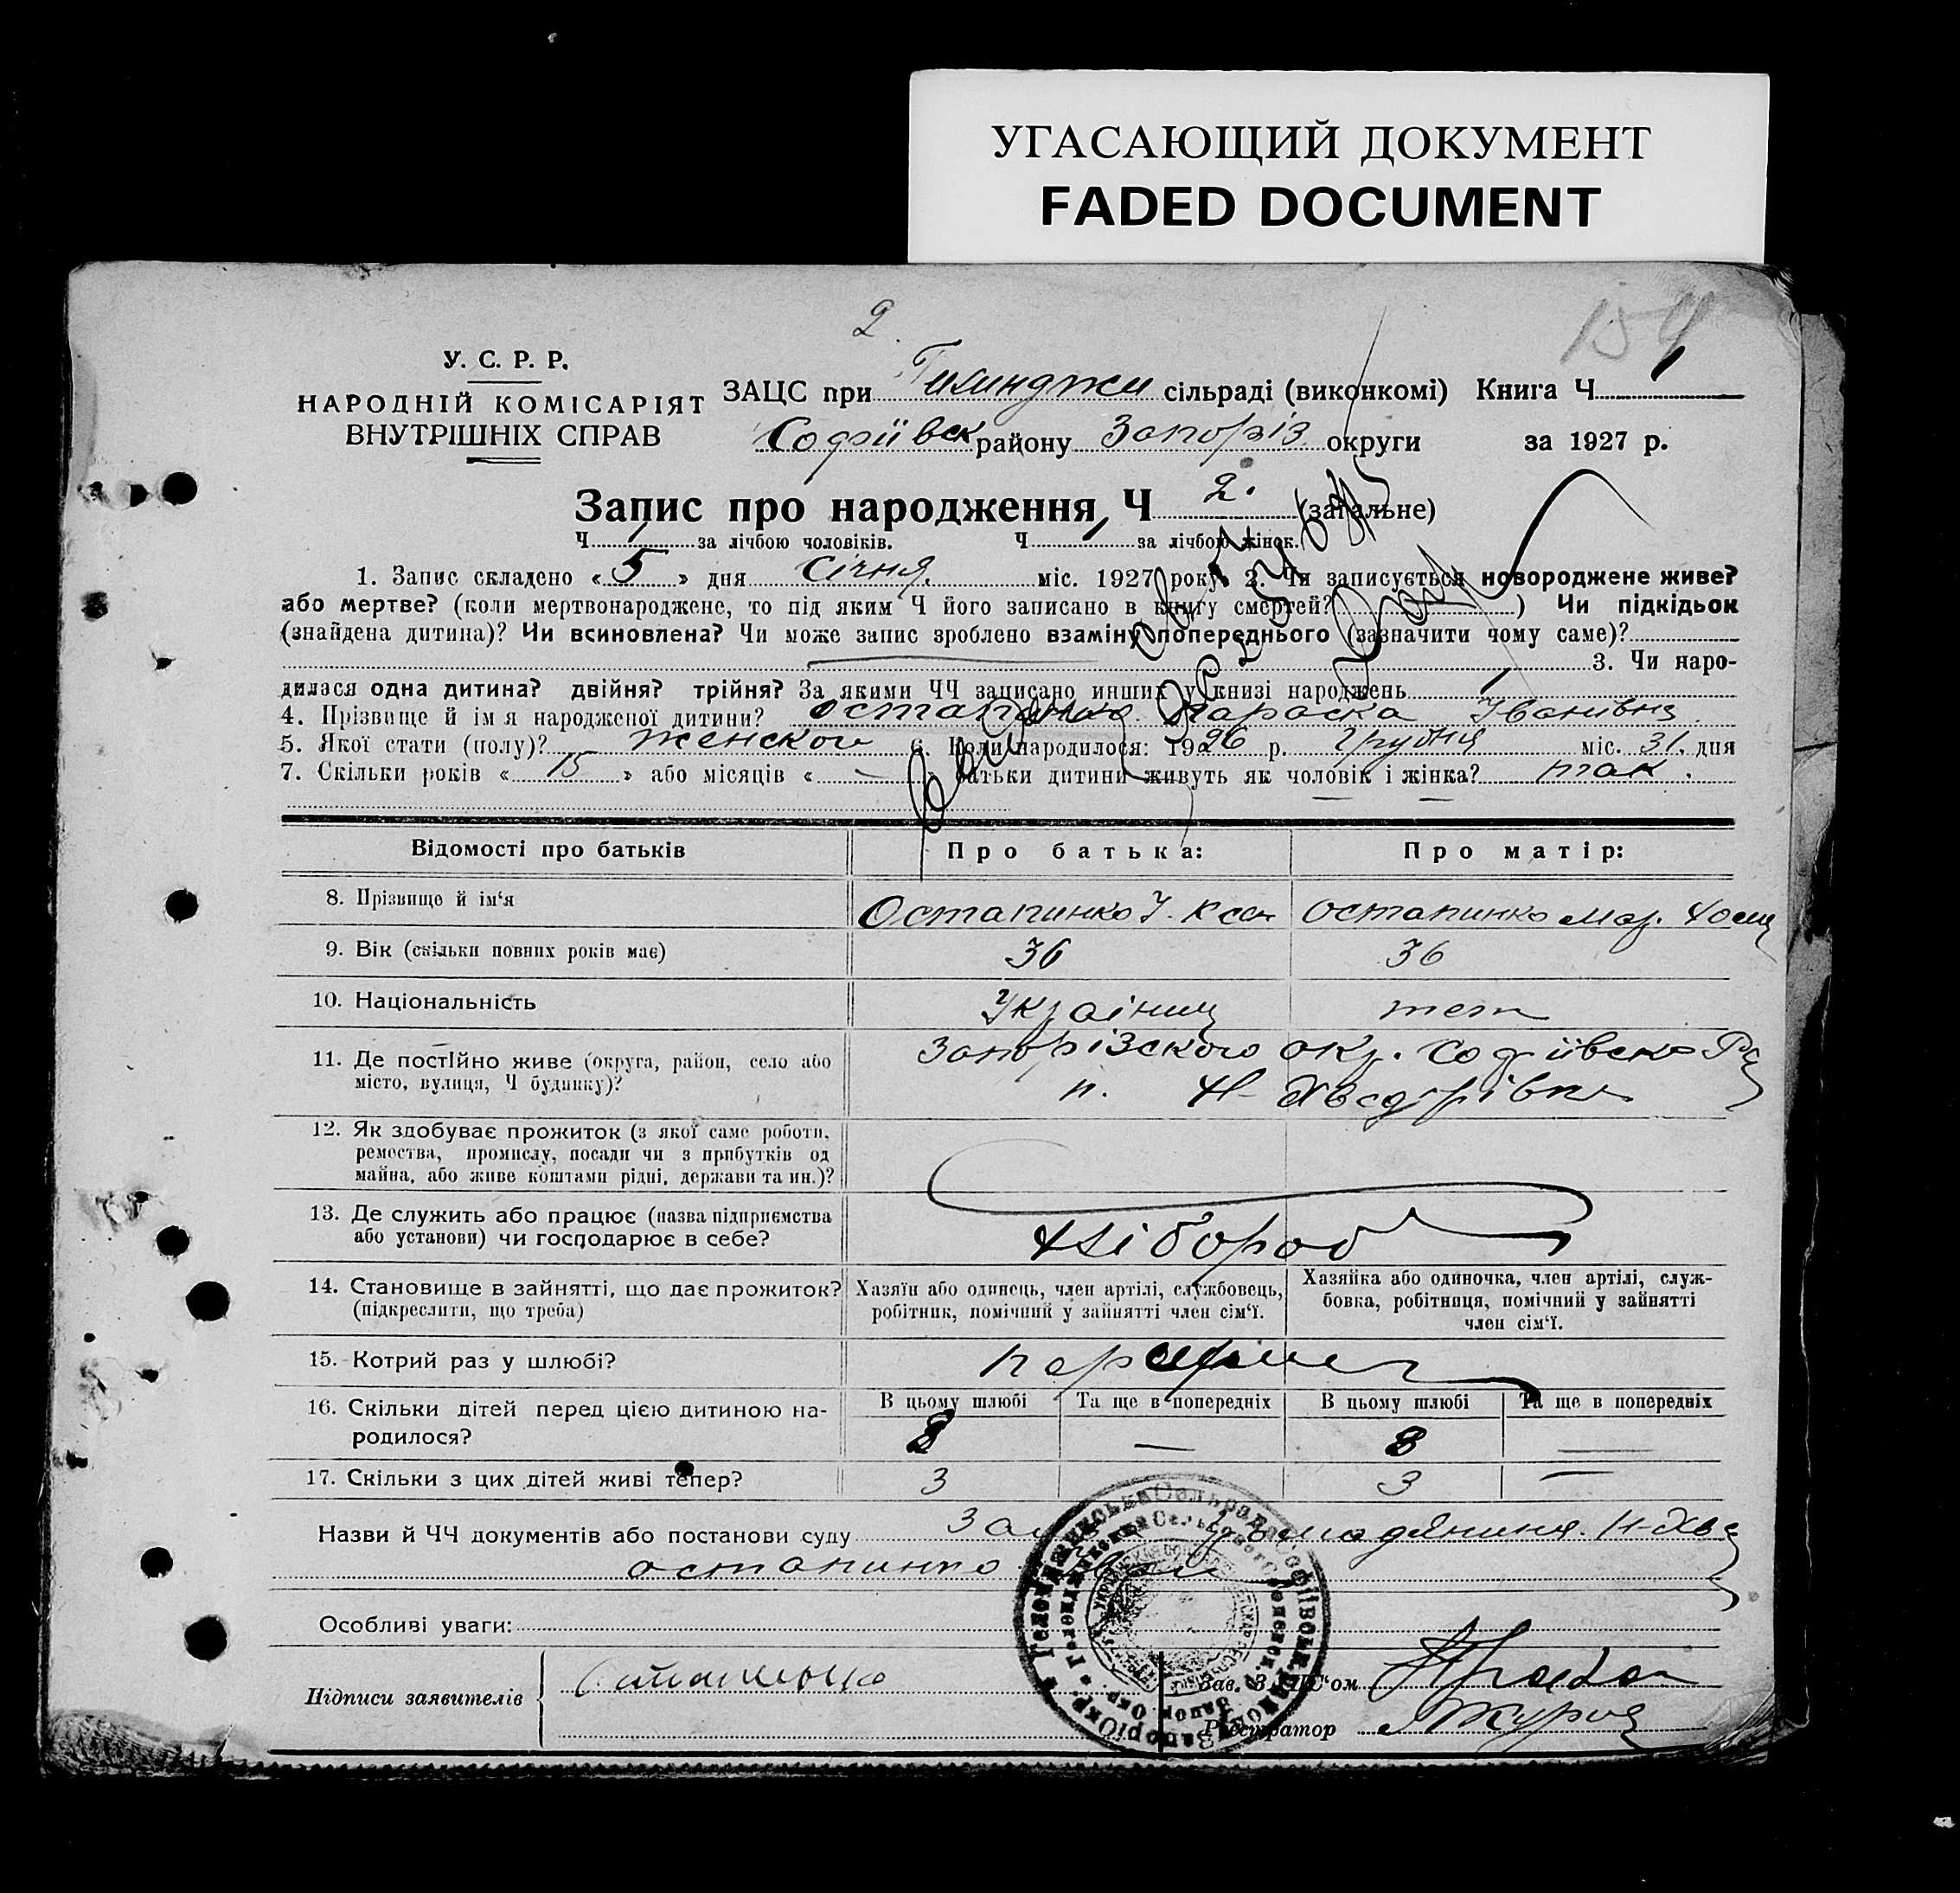 УГАСАЮЩИЙ ДОКУМЕНТ
FADED DOCUMENT
2.
У. С. Р. Р.
НАРОДНІЙ КОМІСАРІЯТ
ВНУТРІШНІХ СПРАВ
ЗАЦС при сільраді (виконкомі) Книга Ч 1
Софіївск району Запоріз округи за 1927 р.
Запис про народження Ч 2. (загальне)
Ч 1 за лічбою чоловіків. Ч 1 за лічбою жінок.
1. Запис складено « 5 » дня Січня. міс. 1927 року. 2. Чи записується новороджене живе?
або мертве? (коли мертвонароджене, то під яким Ч його записано в книгу смертей? ) Чи підкідьок
(знайдена дитина)? Чи всиновлена? Чи може запис зроблено взаміну попереднього (зазначити чому саме)?
3. Чи наро-
дилася одна дитина? двійня? трійня? За якими ЧЧ записано инших у книзі народжень 1
4. Прізвище й ім я народженої дитини? Параска Іванівна
5. Якої стати (полу)? женского 6. Коли народилося: 1926 р. грудня міс. 31. дня
7. Скільки років « 15 » або місяців « — батьки дитини живуть як чоловік і жінка? так.
Відомості про батьків
Про батька:
Про матір:
8. Прізвище й ім‘я
Остапинко І. Ксен
Остапинко Мар.
9. Вік (скільки повних років має)
36
36
10. Національність
Українц
теж
11. Де постійно живе (округа, район, село або
місто, вулиця, Ч будинку)?
Запорізского окр. Софіївско
12. Як здобуває прожиток (з якої саме роботи,
ремества, промислу, посади чи з прибутків од
майна, або живе коштами рідні, держави та ин.)?
13. Де служить або працює (назва підприємства
або установи) чи господарює в себе?
Хлібороб
14. Становище в зайнятті, що дає прожиток?
(підкреслити, що треба)
Хазяїн або одинець, член артілі, службовець,
робітник, помічний у зайнятті член сім‘ї.
Хазяйка або одиночка, член артілі, служ-
бовка, робітниця, помічний у зайнятті
член сім‘ї.
15. Котрий раз у шлюбі?
16. Скільки дітей перед цією дитиною на-
родилося?
В цьому шлюбі
Та ще в попередніх
В цьому шлюбі
Та ще в попередніх
8
—
8
—
17. Скільки з цих дітей живі тепер?
3
3
—
Назви й ЧЧ документів або постанови суду громадянина
остапинко
Особливі уваги:
Підписи заявителів
Зав. ЗАЦС‘ом
Реєстратор